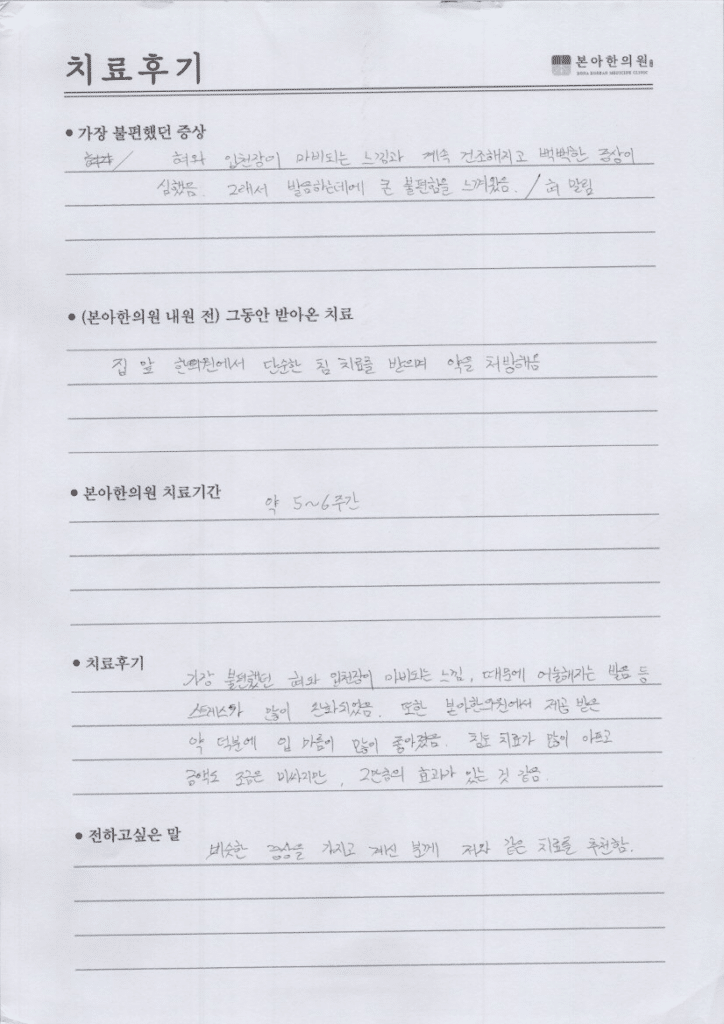 치료후기
본아한의원
BONA KOREAN MEDICINE CLINIC
• 가장 불편했던 증상
혀와 입천장이 마비되는 느낌과 계속 건조해지고 뻑뻑한 증상이
심했음. 그래서 발음하는데에 큰 불편함을 느껴왔음. / 혀 말림
• (본아한의원 내원 전) 그동안 받아온 치료
집 앞 한의원에서 단순한 침 치료를 받으며 약을 처방해옴
• 본아한의원 치료기간
약 5~6주간
• 치료후기
가장 불편했던 혀와 입천장이 마비되는 느낌, 때문에 어눌해지는 발음 등
스트레스와 많이 완화되었음. 또한 본아한의원에서 제공 받은
약 덕분에 입 마름이 많이 좋아졌음. 침도 치료가 많이 아프고
금액도 조금은 비싸지만, 그만큼의 효과가 있는 것 같음.
• 전하고싶은 말
비슷한 증상을 가지고 계신 분께 저와 같은 치료를 추천함.